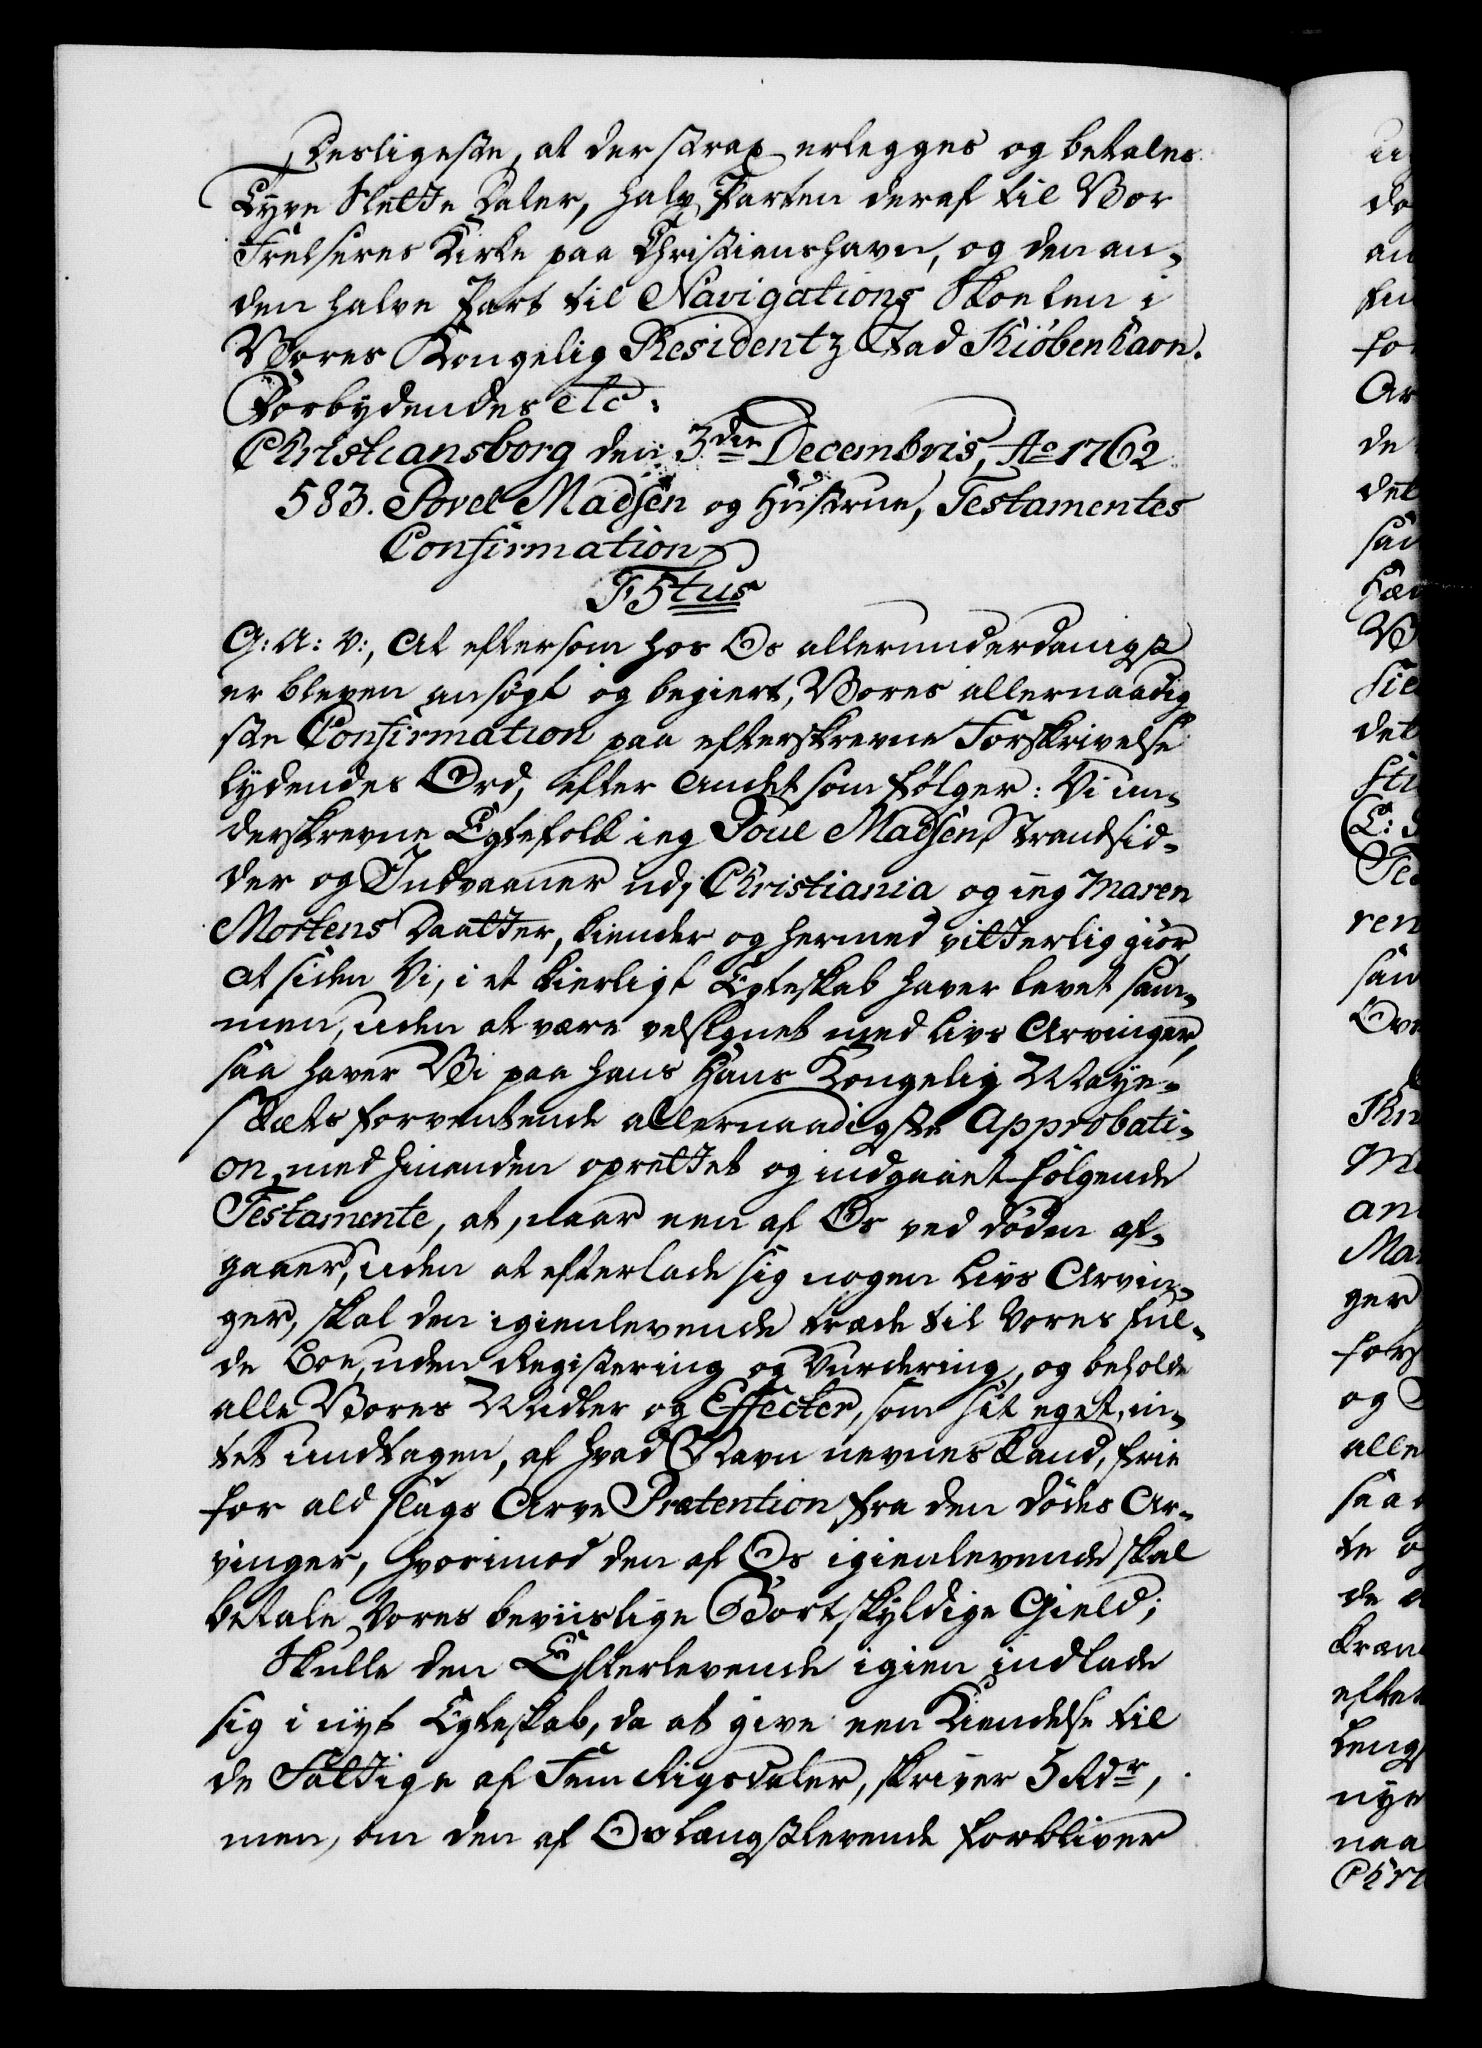 Desligeste, at der strax erlegges og betales
Tyve Slette Daler, halv Parten deraf til Vor
Frelseres Kirke paa Christianshavn, og den an-
den halve Part til Navigations Skoelen i
Vores Kongelig Residentz Stad Kiøbenhavn.
Forbydendes etc:
Christiansborg den 3die Decembris, Ao 1762
583. Povel Madsen og Hustrue, Testamentes
Confirmation
F5tus
G: A: V:, At eftersom hos Os allerunderdanigst
er bleven ansøgt og begiert, Vores allernaadig
ste Confirmation paa efterskrevne Forskrivelse
lydendes Ord, efter Andet som følger: Vi un-
derskrevne Egtefolk ieg Poul Madsen Strandsid-
der og Indvaaner udi Christiania og ieg Maren
Mortens Daatter, kiender og hermed vitterlig giør,
at siden Vi, i et kierligt Egteskab haver levet sam-
men, uden at være velsignet med Livs Arvinger,
saa haver Vi paa hans Hans Kongelig Maye-
stæts forventende allernaadigste Approbati-
on, med hinanden oprettet og indgaaet følgende
Testamente, at, naar een af Os ved døden af-
gaaer, uden at efterlade sig nogen Livs Arvin-
ger, skal den igienlevende træde til Vores ful-
de Boe, uden Registering og Vurdering, og beholde
alle Vores Midler og Effecter, som sit eget, in-
tet undtagen, af hvad Navn nevnes kand, frie
for ald slags Arve Prætention fra den dødes Ar-
vinger, hvorimod den af Os igienlevende skal
betale Vores beviislige Bortskyldige Gield;
Skulle den Efterlevende igien indlade
sig i nyt Egteskab, da at give een Kiendelse til
de Fattige af Fem Rigsdaler, skriver 5 Rdr,
men, om den af Os længstlevende forbliver